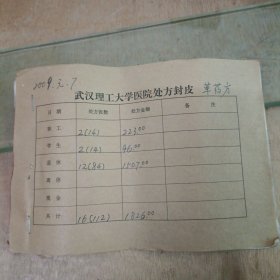 2009.3.7
武汉理工大学医院处方封皮 草药方
日期 处方张数 处方金额 备注
职工 2(14) 223.00
学生 2(14) 96.00
退休 12(84) 1507.00
离休
其合
共计 16(112) 1826.00